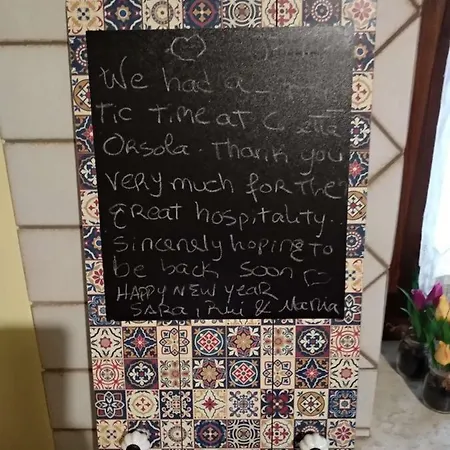 We had a
TIC TIME AT
Orsola. Thank you
very much for the
great hospitality.
sincerely hoping to
be back soon
HAPPY NEW YEAR
SARA, & Marina